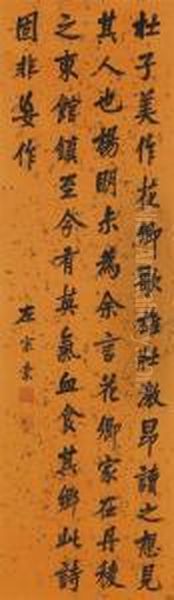 杜子美作花卿歌雄壯激昂讀之想見
其人也楊明未為余言花卿家在丹稜
之東館鎮至今有英氣血食其鄉此詩
固非妄作
左宗棠